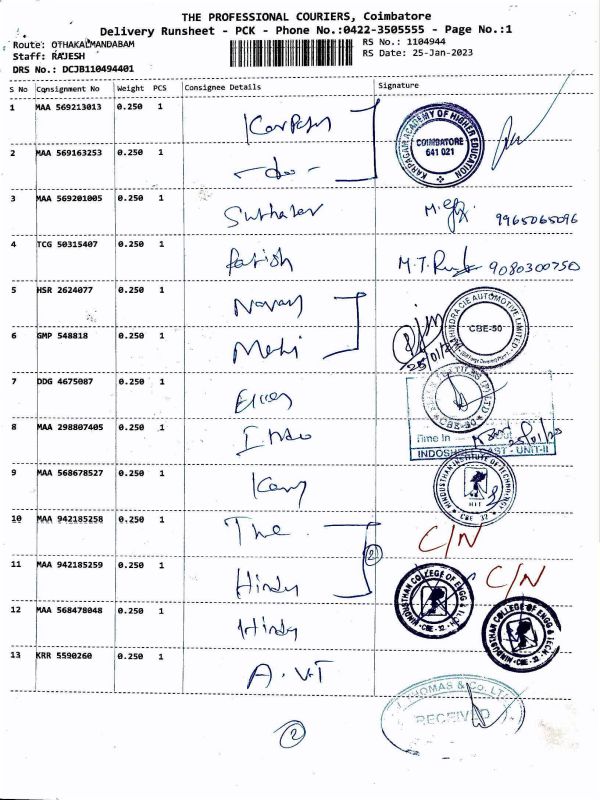 THE PROFESSIONAL COURIERS, Coimbatore
Delivery Runsheet - PCK - Phone No.:0422-3505555 - Page No.:1
Route: OTHAKALMANDABAM
RS No.: 1104944
Staff: RAJESH
RS Date: 25-Jan-2023
DRS No.: DCJB110494401
S No Consignment No Weight PCS Consignee Details Signature
1 MAA 569213013 0.250 1
KARPAGAM ACADEMY OF HIGHER EDUCATION
COIMBATORE
641 021
2 MAA 569163253 0.250 1 -do-
3 MAA 569201005 0.250 1 9965065096
4 TCG 50315407 0.250 1 M.T. 9080300750
5 HSR 2624077 0.250 1
MAHINDRA CIE AUTOMOTIVE LIMITED
CBE-50
6 GMP 548818 0.250 1
7 DDG 4675087 0.250 1
CBE-50
8 MAA 298807405 0.250 1 Indo
Time In
INDOSHELL CAST - UNIT-II
9 MAA 568678527 0.250 1
HINDUSTHAN INSTITUTE OF TECHNOLOGY
HIT
CBE 32
10 MAA 942185258 0.250 1 The C/N
2
11 MAA 942185259 0.250 1 Hindu C/N
HINDUSTHAN COLLEGE OF ENGG & TECH
CBE-32
12 MAA 568478048 0.250 1 Hindu
HINDUSTHAN COLLEGE OF ENGG & TECH
CBE-32
13 KRR 5590260 0.250 1 A.V.T
THOMAS & Co. LTD
RECEIVED
2